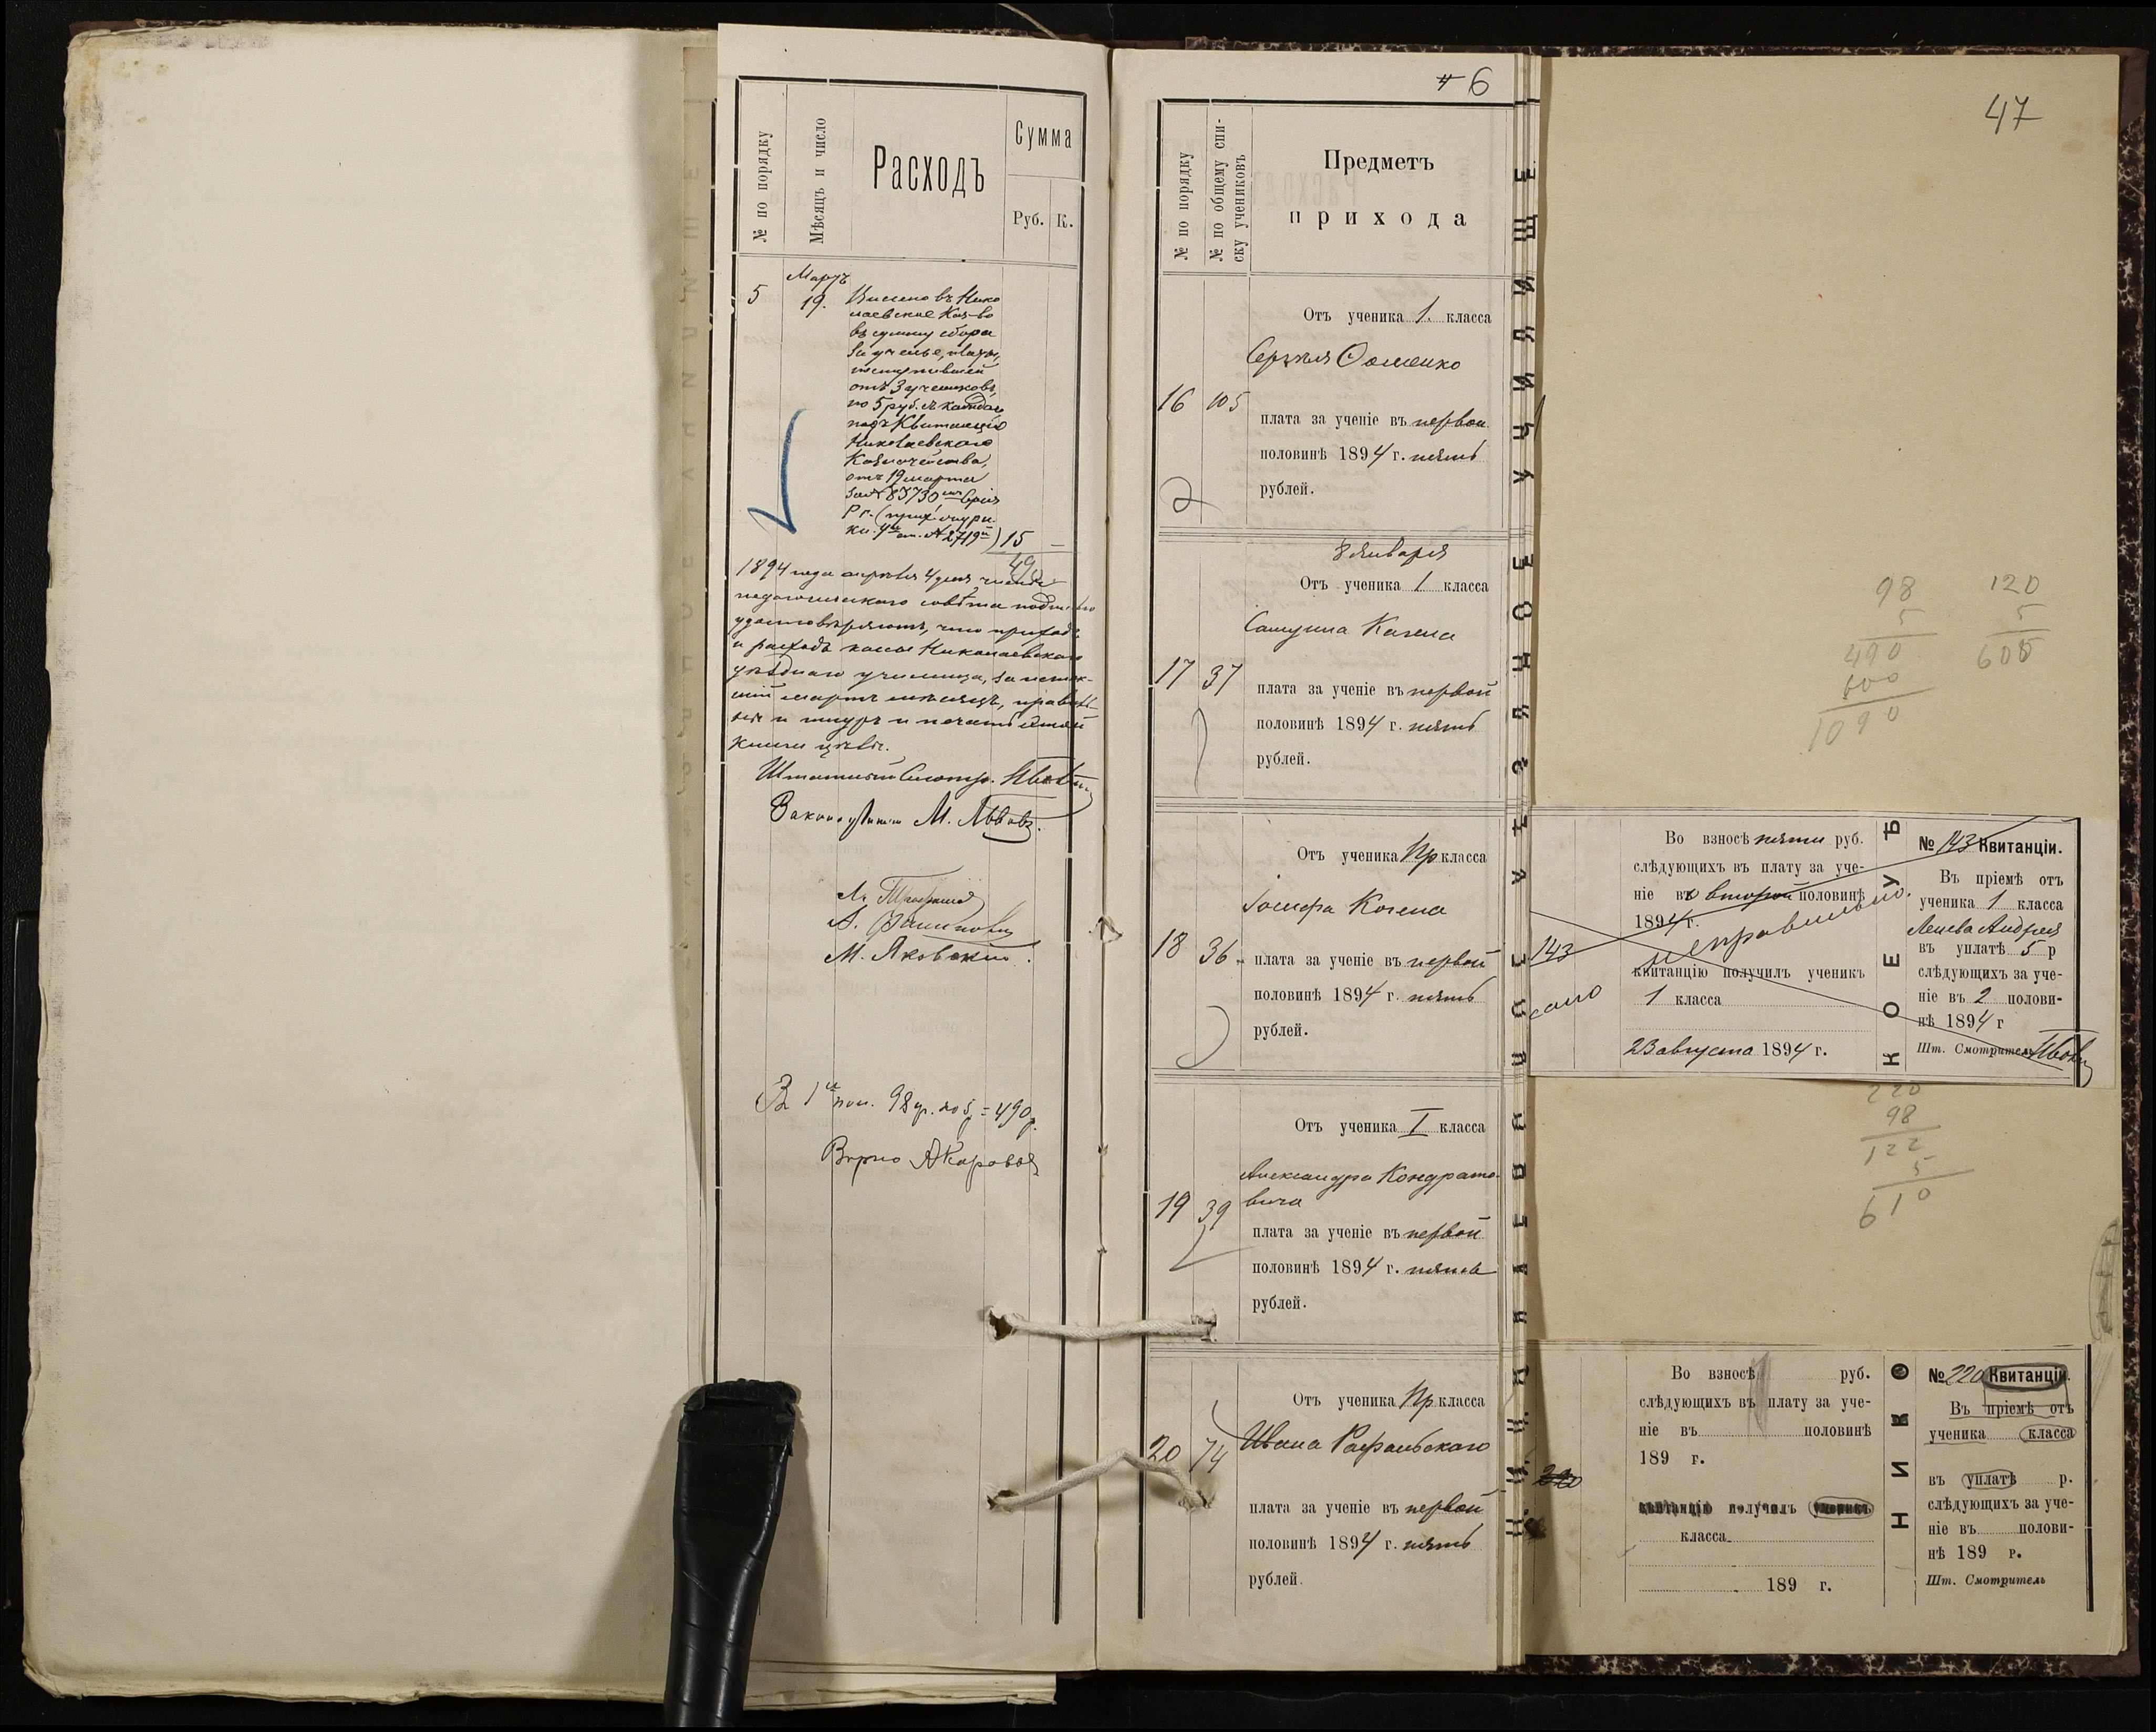 № по порядку
Мѣсяцъ и число
Расходъ
Сумма
Руб. К.
5
Мартъ
19.
Внесено въ Нико
лаевское Каз-во
въ сумму сбора
за ученье, плата,
поступившей
отъ 3 учениковъ,
по 5 руб. съ каждаго
подъ Квитанцію
Николаевскаго
Казначейства,
отъ 19 марта
15 —
490
1894 года апрѣля 4 дня члены
педагогическаго совѣта подписью
удостовѣряютъ, что приходъ
и расходъ кассы Николаевскаго
уѣзднаго училища, за истек-
шій мартъ мѣсяцъ, правиль-
ны и шнуръ и печать этой
книги цѣлы.
Штатный Смотр.
Законоучитель М. Львовъ.
М. Яковскій.
В 1й пол. 98 уч. по 5 = 490 р.
Вѣрно
6
№ по порядку
№ по общему спи-
ску учениковъ
Предметъ
прихода
Отъ ученика 1. класса
Сергѣя Фоменко
16 105
плата за ученіе въ первой
половинѣ 1894 г. пять
рублей.
8 января
Отъ ученика 1 класса
Самуила Когена
17 37
плата за ученіе въ первой
половинѣ 1894 г. пять
рублей.
Отъ ученика Пр класса
Іосифа Когена
18 36
плата за ученіе въ первой
половинѣ 1894 г. пять
рублей.
Отъ ученика I класса
Александра Кондрато-
вича
19 39
плата за ученіе въ первой
половинѣ 1894 г. пять
рублей.
Отъ ученика Пр класса
Ивана Рафальскаго
20 74
плата за ученіе въ первой
половинѣ 1894 г. пять
рублей.
НИКОЛАЕВСКОЕ УѢЗДНОЕ УЧИЛИЩЕ
47
98
5
490
600
1090
120
5
600
143
Во взносѣ пяти руб.
слѣдующихъ въ плату за уче-
ніе въ второй половинѣ
1894 г.
неправильно.
квитанцію получилъ ученикъ
1 класса
23 августа 1894 г.
КОЕ УѢ
№ 143 Квитанціи.
Въ пріемѣ отъ
ученика 1 класса
Андрея
въ уплатѣ 5 р
слѣдующихъ за уче-
ніе въ 2 полови-
нѣ 1894 г
Шт. Смотритель
220
98
122
5
610
220
Во взносѣ руб.
слѣдующихъ въ плату за уче-
ніе въ половинѣ
189 г.
квитанцію получилъ ученикъ
класса
189 г.
НИКО
№ 220 Квитанціи.
Въ пріемѣ отъ
ученика класса
въ уплатѣ р.
слѣдующихъ за уче-
ніе въ полови-
нѣ 189 г.
Шт. Смотритель